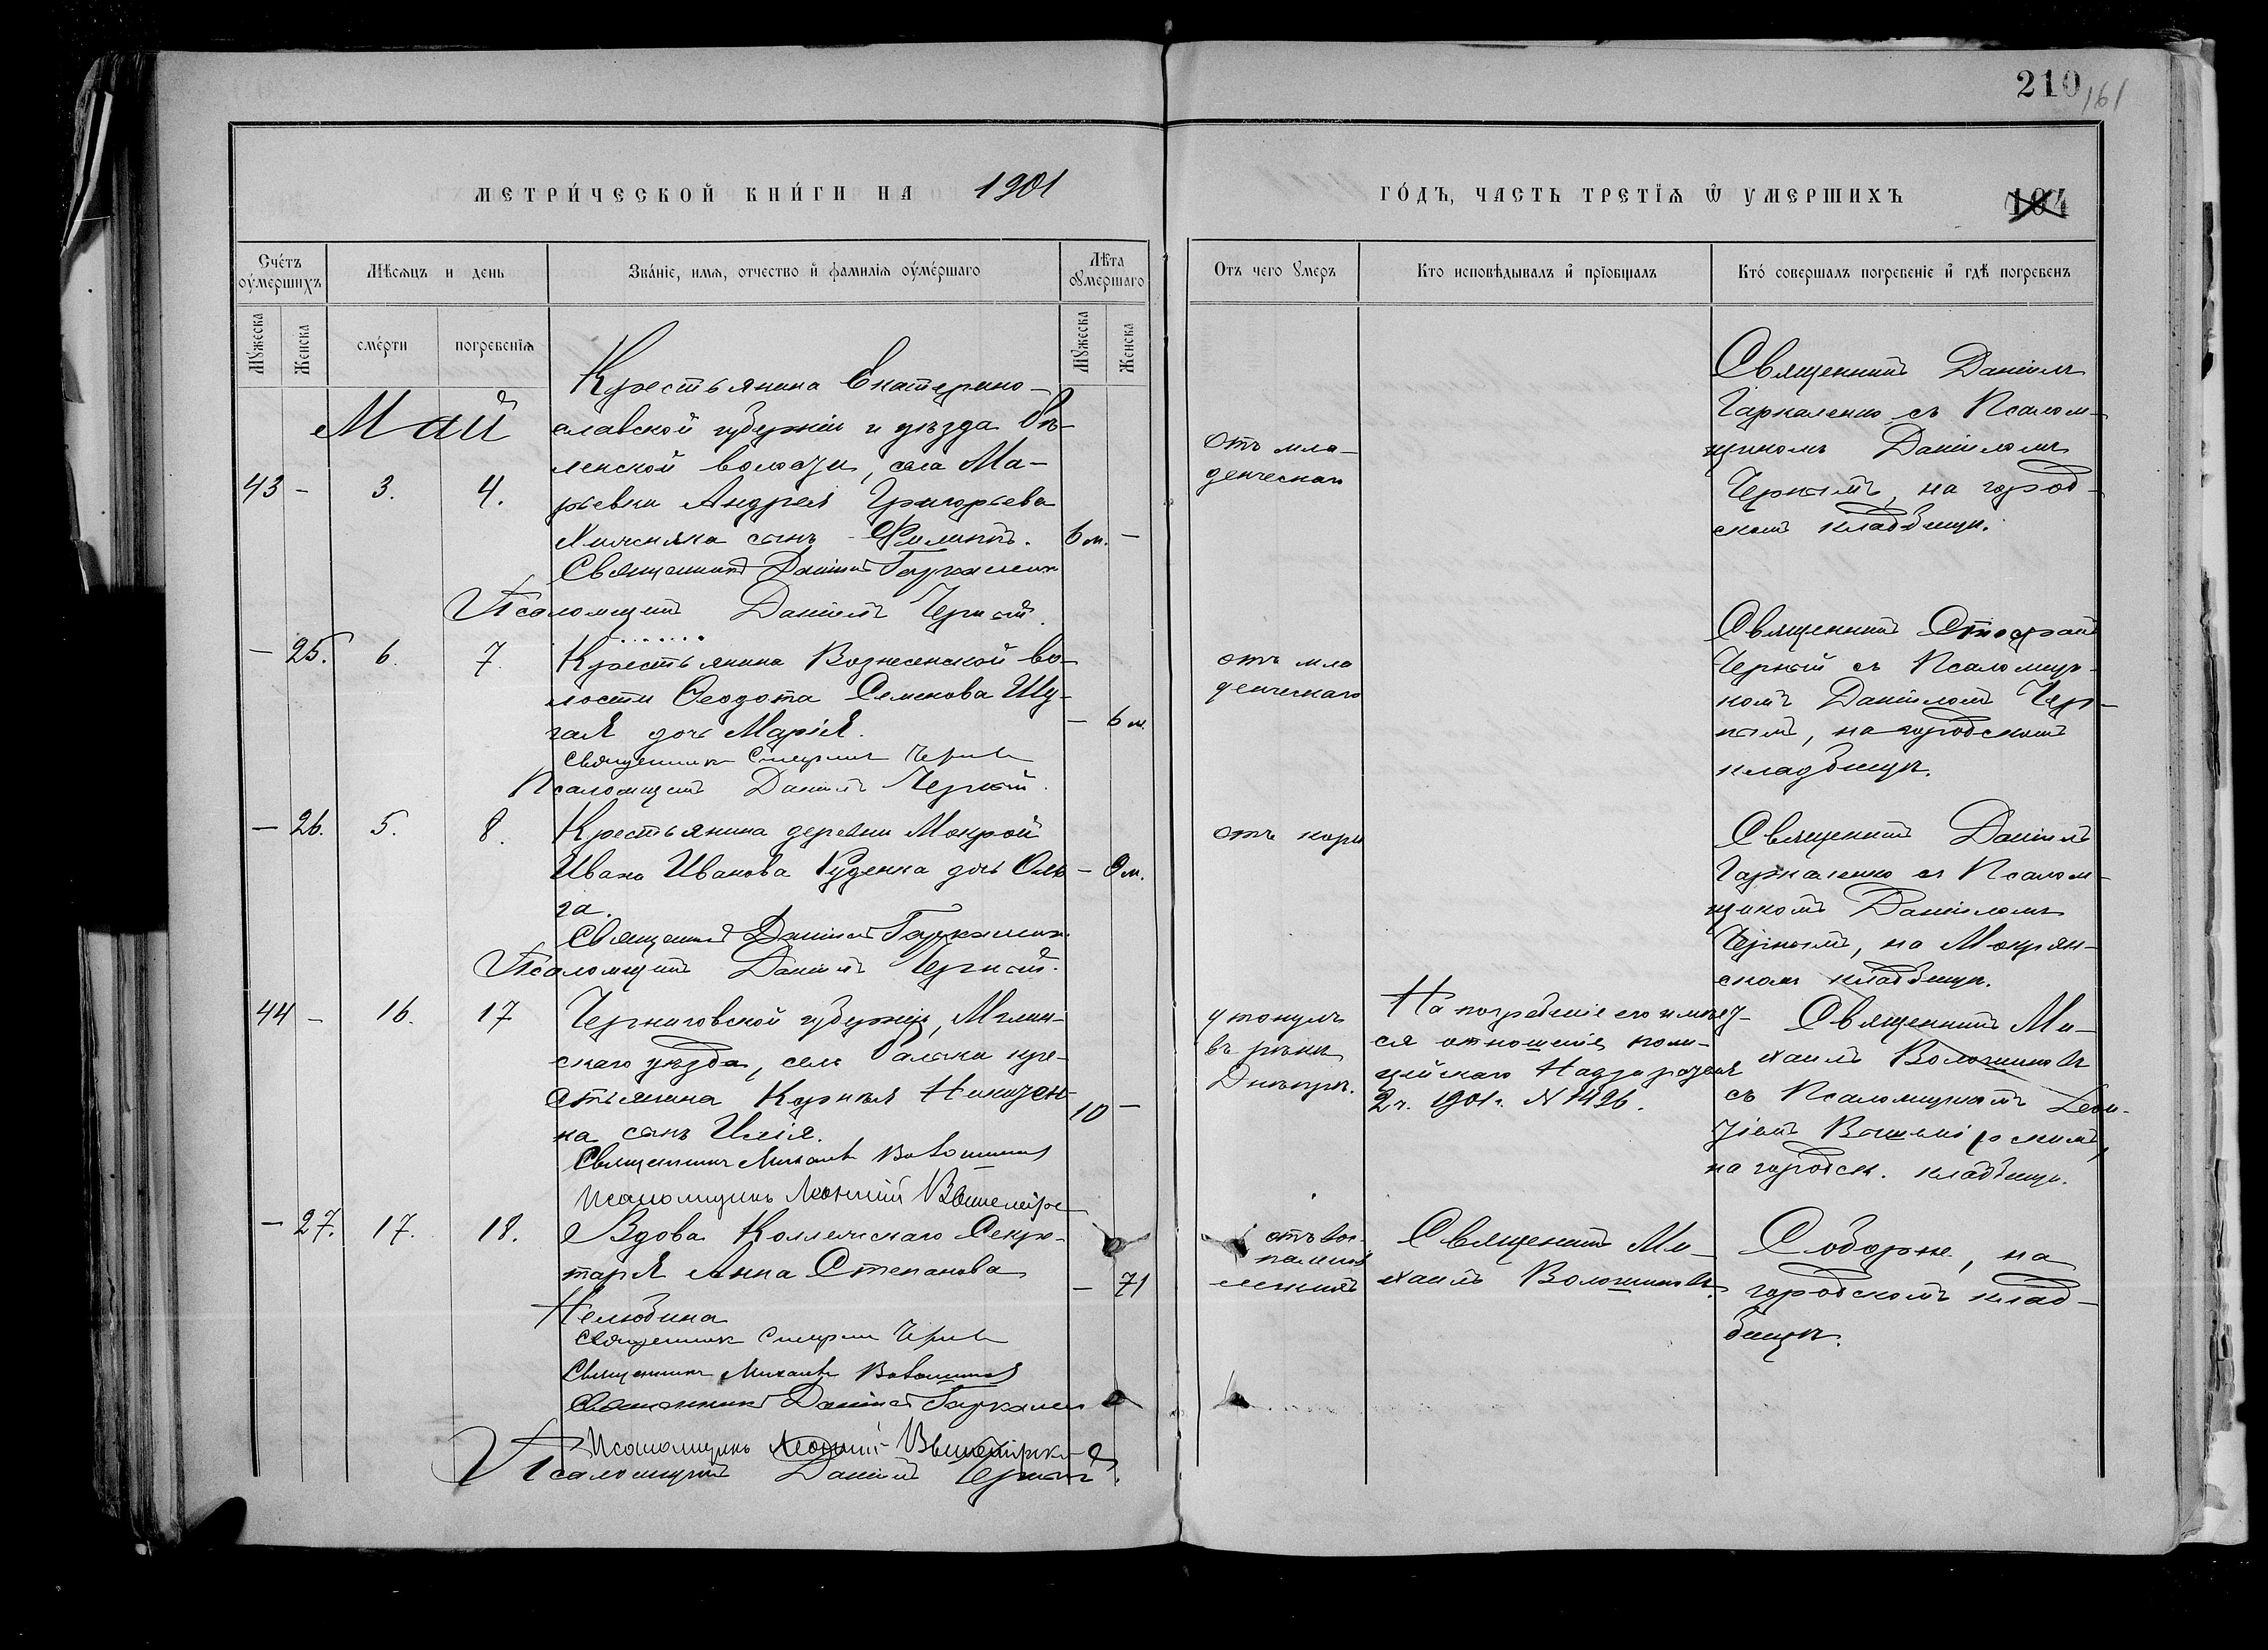 210
161
МЕТРИ́ЧЕСКОЙ КНИ́ГИ НА 1901
ГО́ДЪ, ЧАСТЬ ТРЕТІѦ Ѿ УМЕРШИХЪ
104
Сче́тъ оу́мершихъ
Мѣсѧцъ и день
Зва́ніе, имѧ, отчество и҆ фамиліѧ оу҆ме́ршаго
Лѣта Ꙋмершаго
Отъ чего Ꙋмеръ
Кто исповѣдывалъ и҆ прїобщалъ
Кто́ совершалъ погребеніе и҆ гдѣ погребенъ
Мꙋжеска
Женска
сме́рти
погребеніѧ
Мꙋжеска
Женска
Май
43 - 3. 4.
Крестьянина Екатерино-
славской губерніи и уѣзда Бѣ-
ленской волости, села Ма-
рьевки Андрея Григорьева
сынъ Филиппъ. 6 м. -
Священникъ Даніилъ Гаркаленко
Псаломщикъ Даніилъ Черный.
Отъ мла-
денческаго
Священникъ Даніилъ
Гаркаленко съ Псалом-
щикомъ Даніиломъ
Чернымъ, на город-
скомъ кладбищѣ.
- 25. 6. 7.
Крестьянина Вознесенской во-
лости Ѳеодота Семенова Шу-
гая дочь Марія. - 6 м.
Священникъ Черный
Псаломщикъ Даніилъ Черный.
отъ мла
денческаго
Священникъ
Черный съ Псаломщи-
комъ Даніиломъ Чер-
нымъ, на городскомъ
кладбищѣ.
- 26. 5. 8.
Крестьянина деревни Мокрой
Ивана Иванова Руденка дочь Оль- - 9 м.
га.
Священникъ Даніилъ Гаркаленко
Псаломщикъ Даніилъ Черный.
отъ кори
Священникъ Даніилъ
Гаркаленко съ Псалом-
щикомъ Даніиломъ
Чернымъ, на Мокрян-
скомъ кладбищѣ.
44 - 16. 17
Черниговской губерніи, Мглин-
скаго уѣзда, села кре-
стьянина
на сынъ Илія. 10 -
Священникъ Михаилъ Волошиновъ
Псаломщикъ Леонтій Вышемірскій
утонулъ
въ рѣкѣ
Днѣпрѣ.
На погребеніе его имѣет-
ся отношеніе поли-
цейскаго Надзирателя
2 ч. 1901 г. № 1426.
Священникъ Ми-
хаилъ Волошиновъ
съ Псаломщикомъ Леон-
тіемъ Вышемірскимъ,
на городск. кладбищѣ.
- 27. 17. 18.
Вдова Коллежскаго Секре-
таря Анна Степанова - 71
Нелюбина
Священникъ Черный
Священникъ Михаилъ Волошиновъ
Священникъ Даніилъ Гаркаленко
Псаломщикъ Леонтій Вышемірскій
Псаломщикъ Даніилъ Черный.
отъ вос-
паленія
легкихъ
Священникъ Ми-
хаилъ Волошиновъ.
Соборне, на
городскомъ клад-
бищѣ.